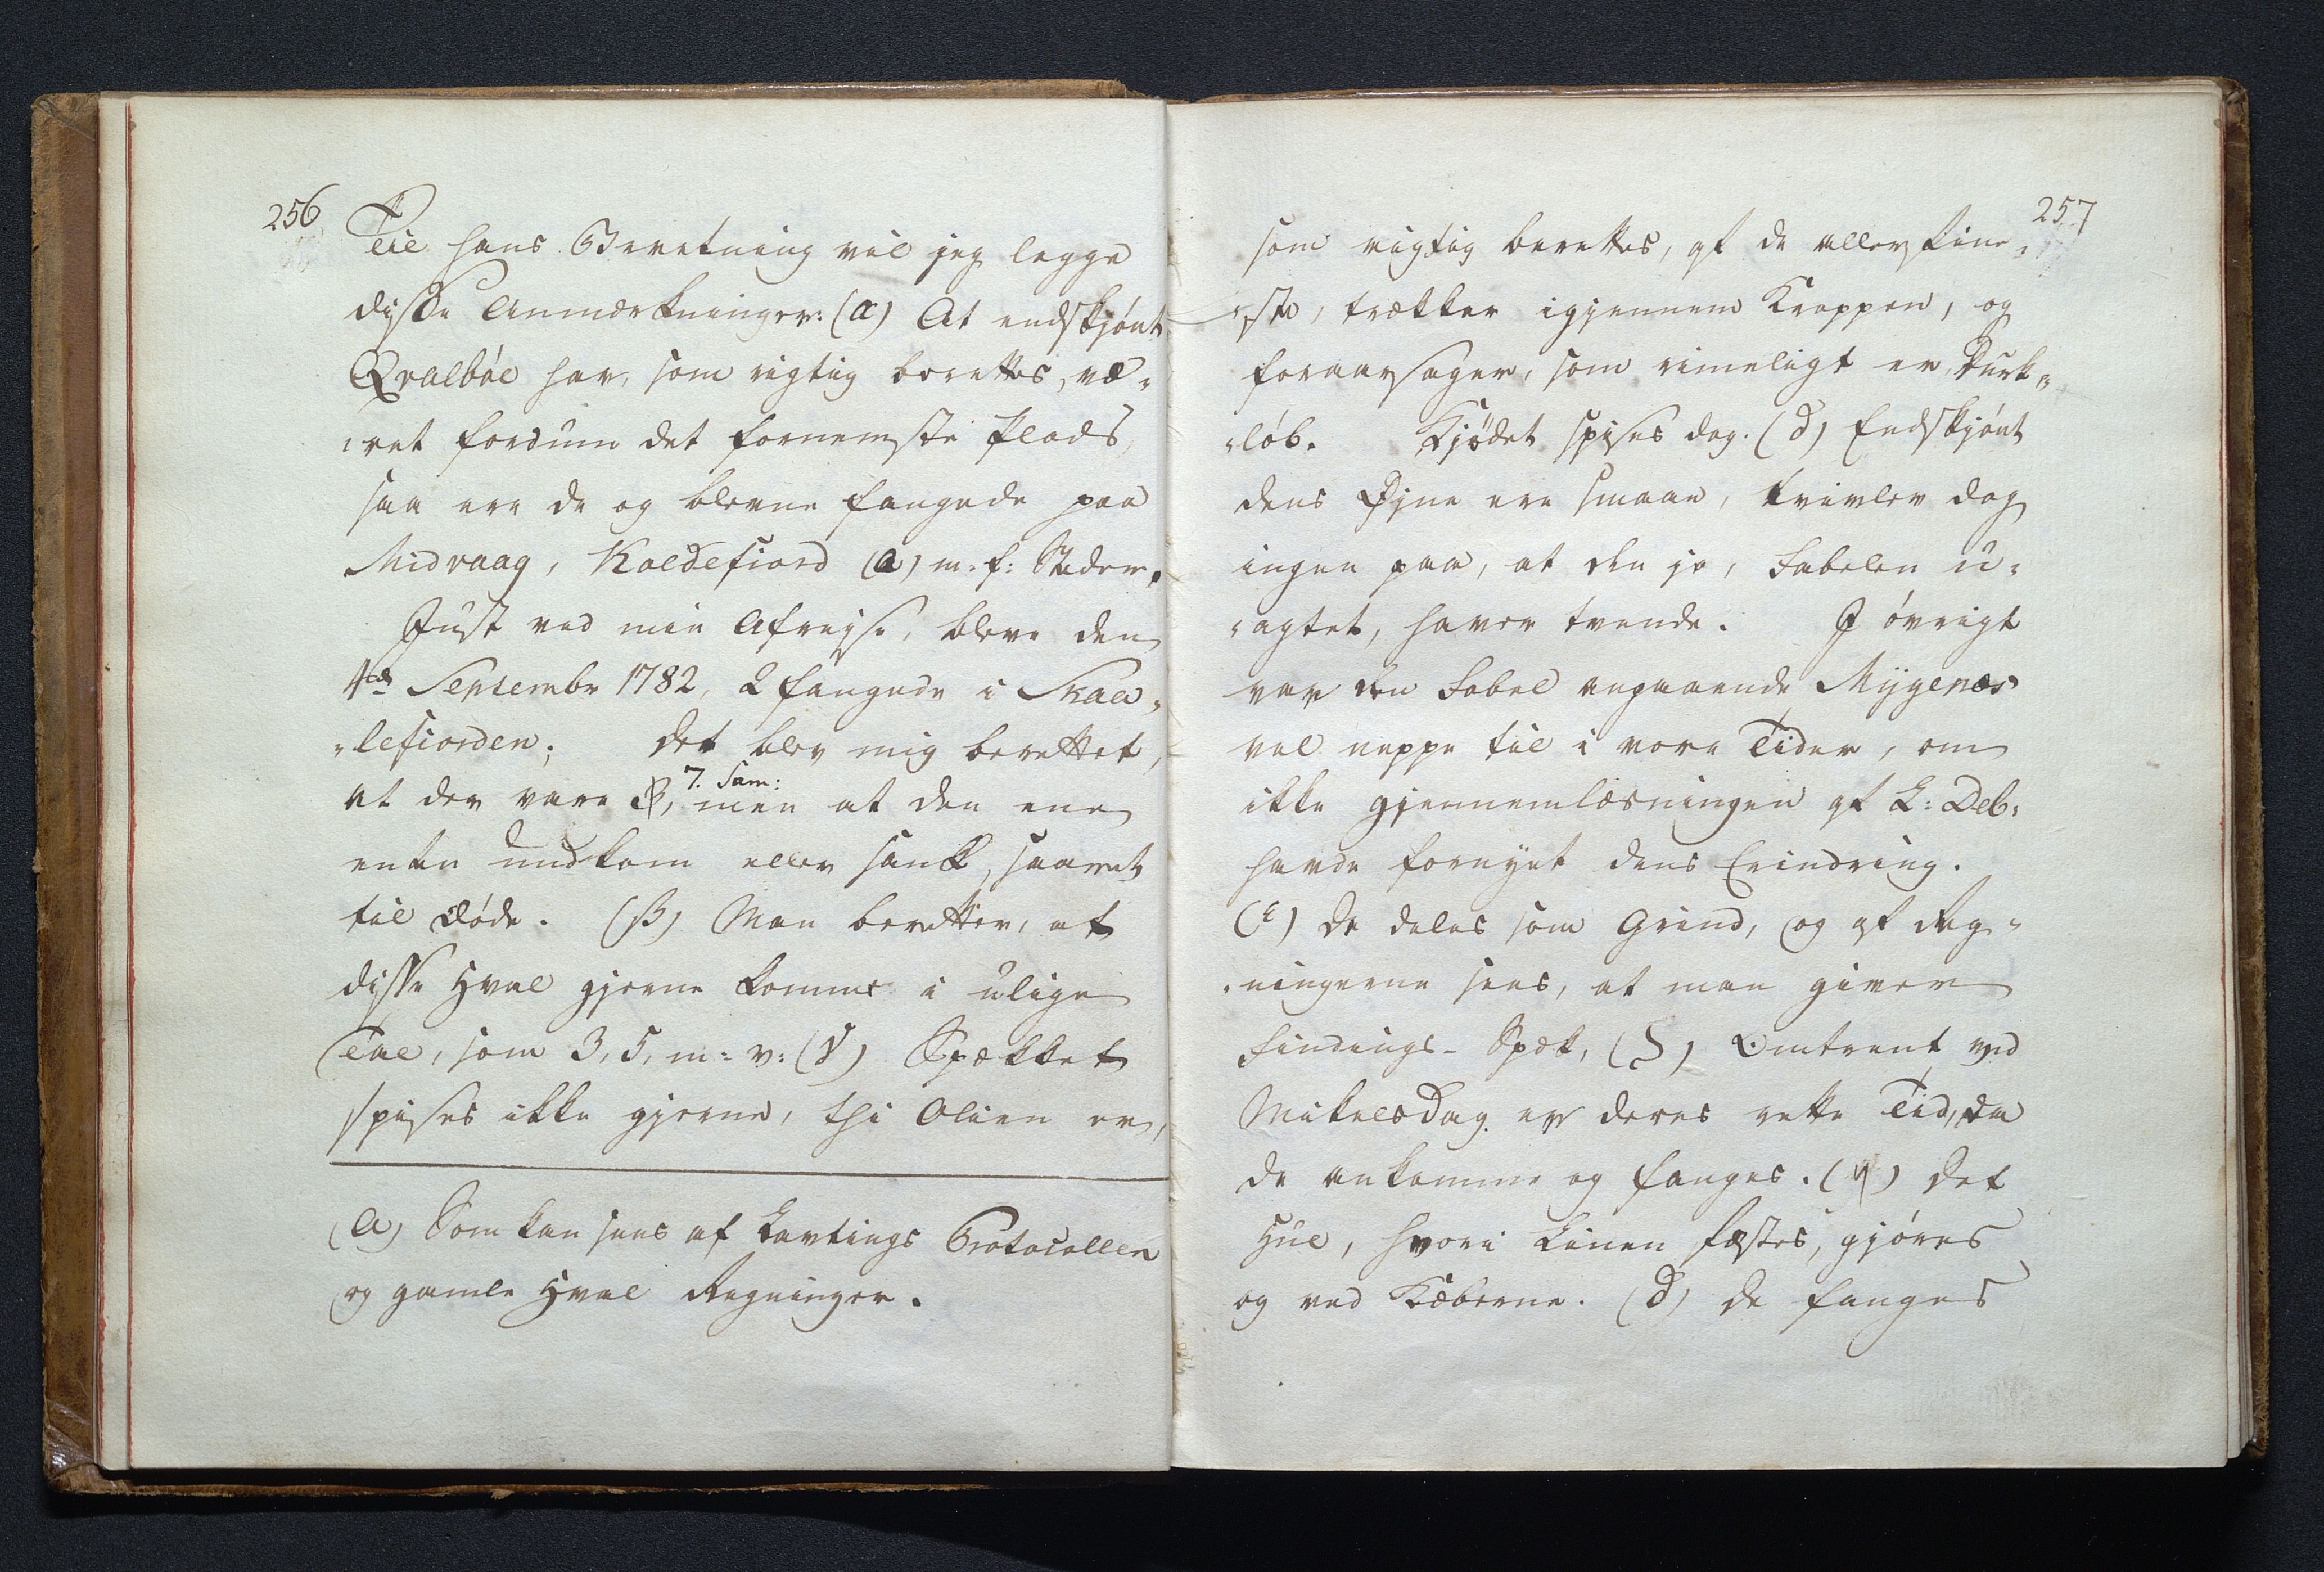 256
Til hans Beretning vil jeg legge
disse Anmærkninger: (α) At endskjønt
Qvalbøe har, som rigtig berettes, væ„
„ret fordum det fornemste Plads,
saa ere de og blevne fangede paa
Midvaag, Kaldefiord (a) m: f: Stæder.
Just ved min Afrejse, bleve den
4de Septembr 1782, 2 fangede i Skaa„
„lefiorden; det blev mig berettet,
7. Sam:
at der vare 3, men at den ene
enten undkom eller sank, saaret
til Døde. (β) Man beretter, at
disse Hval gjerne komme i ulige
Tal, som 3, 5, m: v: (γ) Spækket
spises ikke gjerne, thi Olien er,
(a) Som kan sees af Lavtings Protocollen
og gamle Hval Regninger.
257
som rigtig berettes, af de allerfine„
„ste, trækker igjennem Kroppen, og
foraarsager, som rimeligt er, Durk„
„løb. Kjødet spises dog. (δ) Endskjønt
dens Øjne ere smaae, tvivler dog
ingen paa, at den jo, Fabelen u„
„agtet, haver tvende. I øvrigt
var den Fabel angaaende Mygenæs
vel neppe til i vore Tider, om
ikke gjennemlæsningen af L: Deb:
havde fornyet dens Erindring.
(ε) De deles som Grind, og af Reg„
„ningerne sees, at man giver
Findings-Spæk, (ζ) Omtrent ved
Mikelsdag er deres rette Tid, da
de ankomme og fanges. (η) Det
Hul, hvori Linen fæstes, gjøres
og ved Kæberne. (θ) De fanges